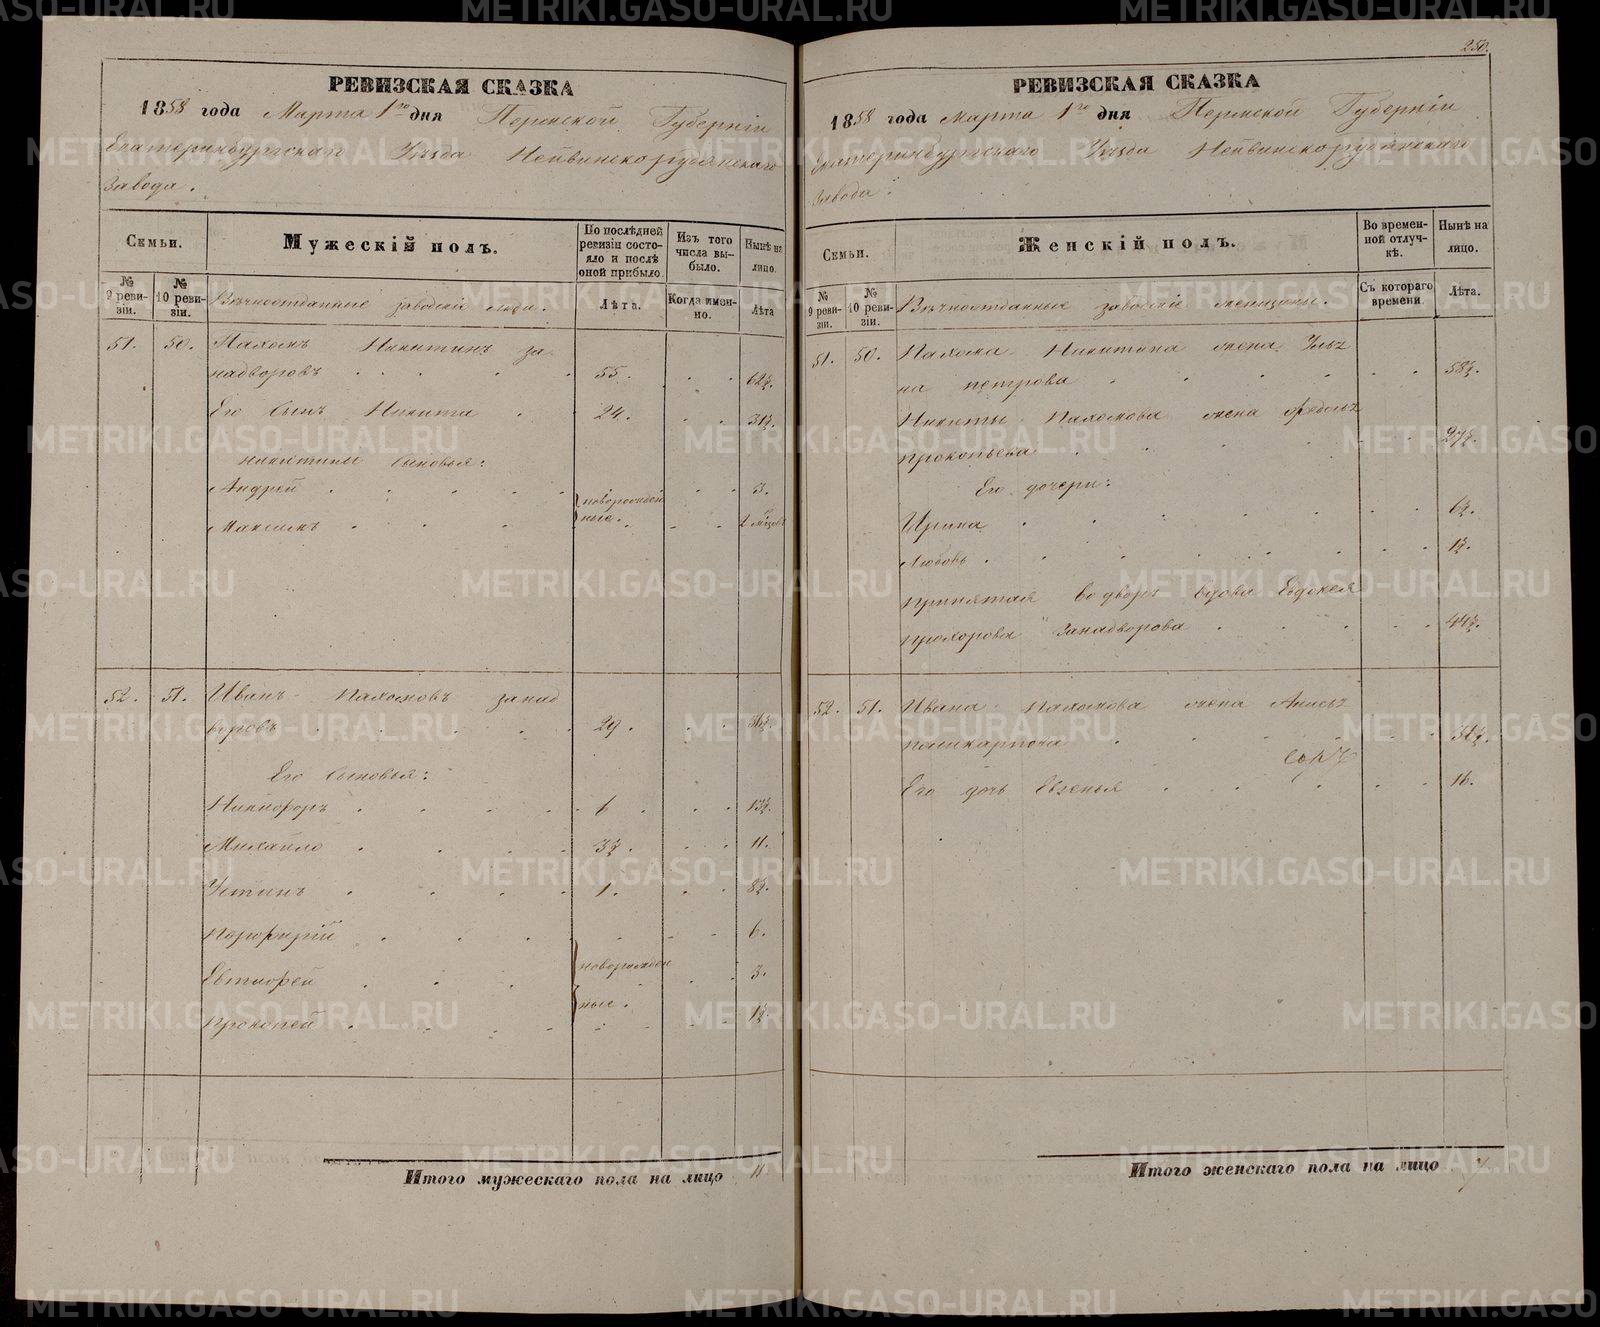 РЕВИЗСКАЯ СКАЗКА
1858 года Марта 1го дня Пермской Губерніи
Екатеринбургскаго Уѣзда Нейвинскорудянскаго
Завода.
Семьи.
Мужескій полъ.
По послѣдней ревизіи состояло и послѣ оной прибыло.
Изъ того числа выбыло.
Нынѣ на лицо.
№ 9 ревизіи.
№ 10 ревизіи.
Вѣчноотданные заводскіе люди.
Лѣта.
Когда именно.
Лѣта
51. 50. Пахомъ Никитинъ За
надворовъ 55. 62½.
Его сынъ Никита 24. 31½.
Никитины сыновья:
Андрей новорожден 3.
Максимъ ные. 2 мѣсяцовъ
52. 51. Иванъ Пахомовъ Занад
воровъ 29. 36½.
Его сыновья:
Никифоръ 6 13½.
Михайло 3½. 11.
Устинъ 1. 8½.
Порфирій 6.
Евтифей новорожден 3.
Прокопей ные. 1½.
Итого мужескаго пола на лицо 11.
250.
РЕВИЗСКАЯ СКАЗКА
1858 года Марта 1го дня Пермской Губерніи
Екатеринбургскаго Уѣзда Нейвинскорудянскаго
Завода.
Семьи.
Женскій полъ.
Во временной отлучкѣ.
Нынѣ на лицо.
№ 9 ревизіи.
№ 10 ревизіи.
Вѣчноотданные заводскіе женщины.
Съ котораго времени.
Лѣта.
51. 50. Пахома Никитина жена Улья
на Петрова 58½.
Никиты Пахомова жена Федосья
Прокопьева 27½.
Его дочери:
Ирина 6½.
Любовь 1½.
Принятая во дворъ вдова Евдокея
Прохорова Занадворова 44½.
52. 51. Ивана Пахомова жена Анисья
Поликарпова
Его дочь Евгенья 16.
Итого женскаго пола на лицо 7
METRIKI.GASO-URAL.RU